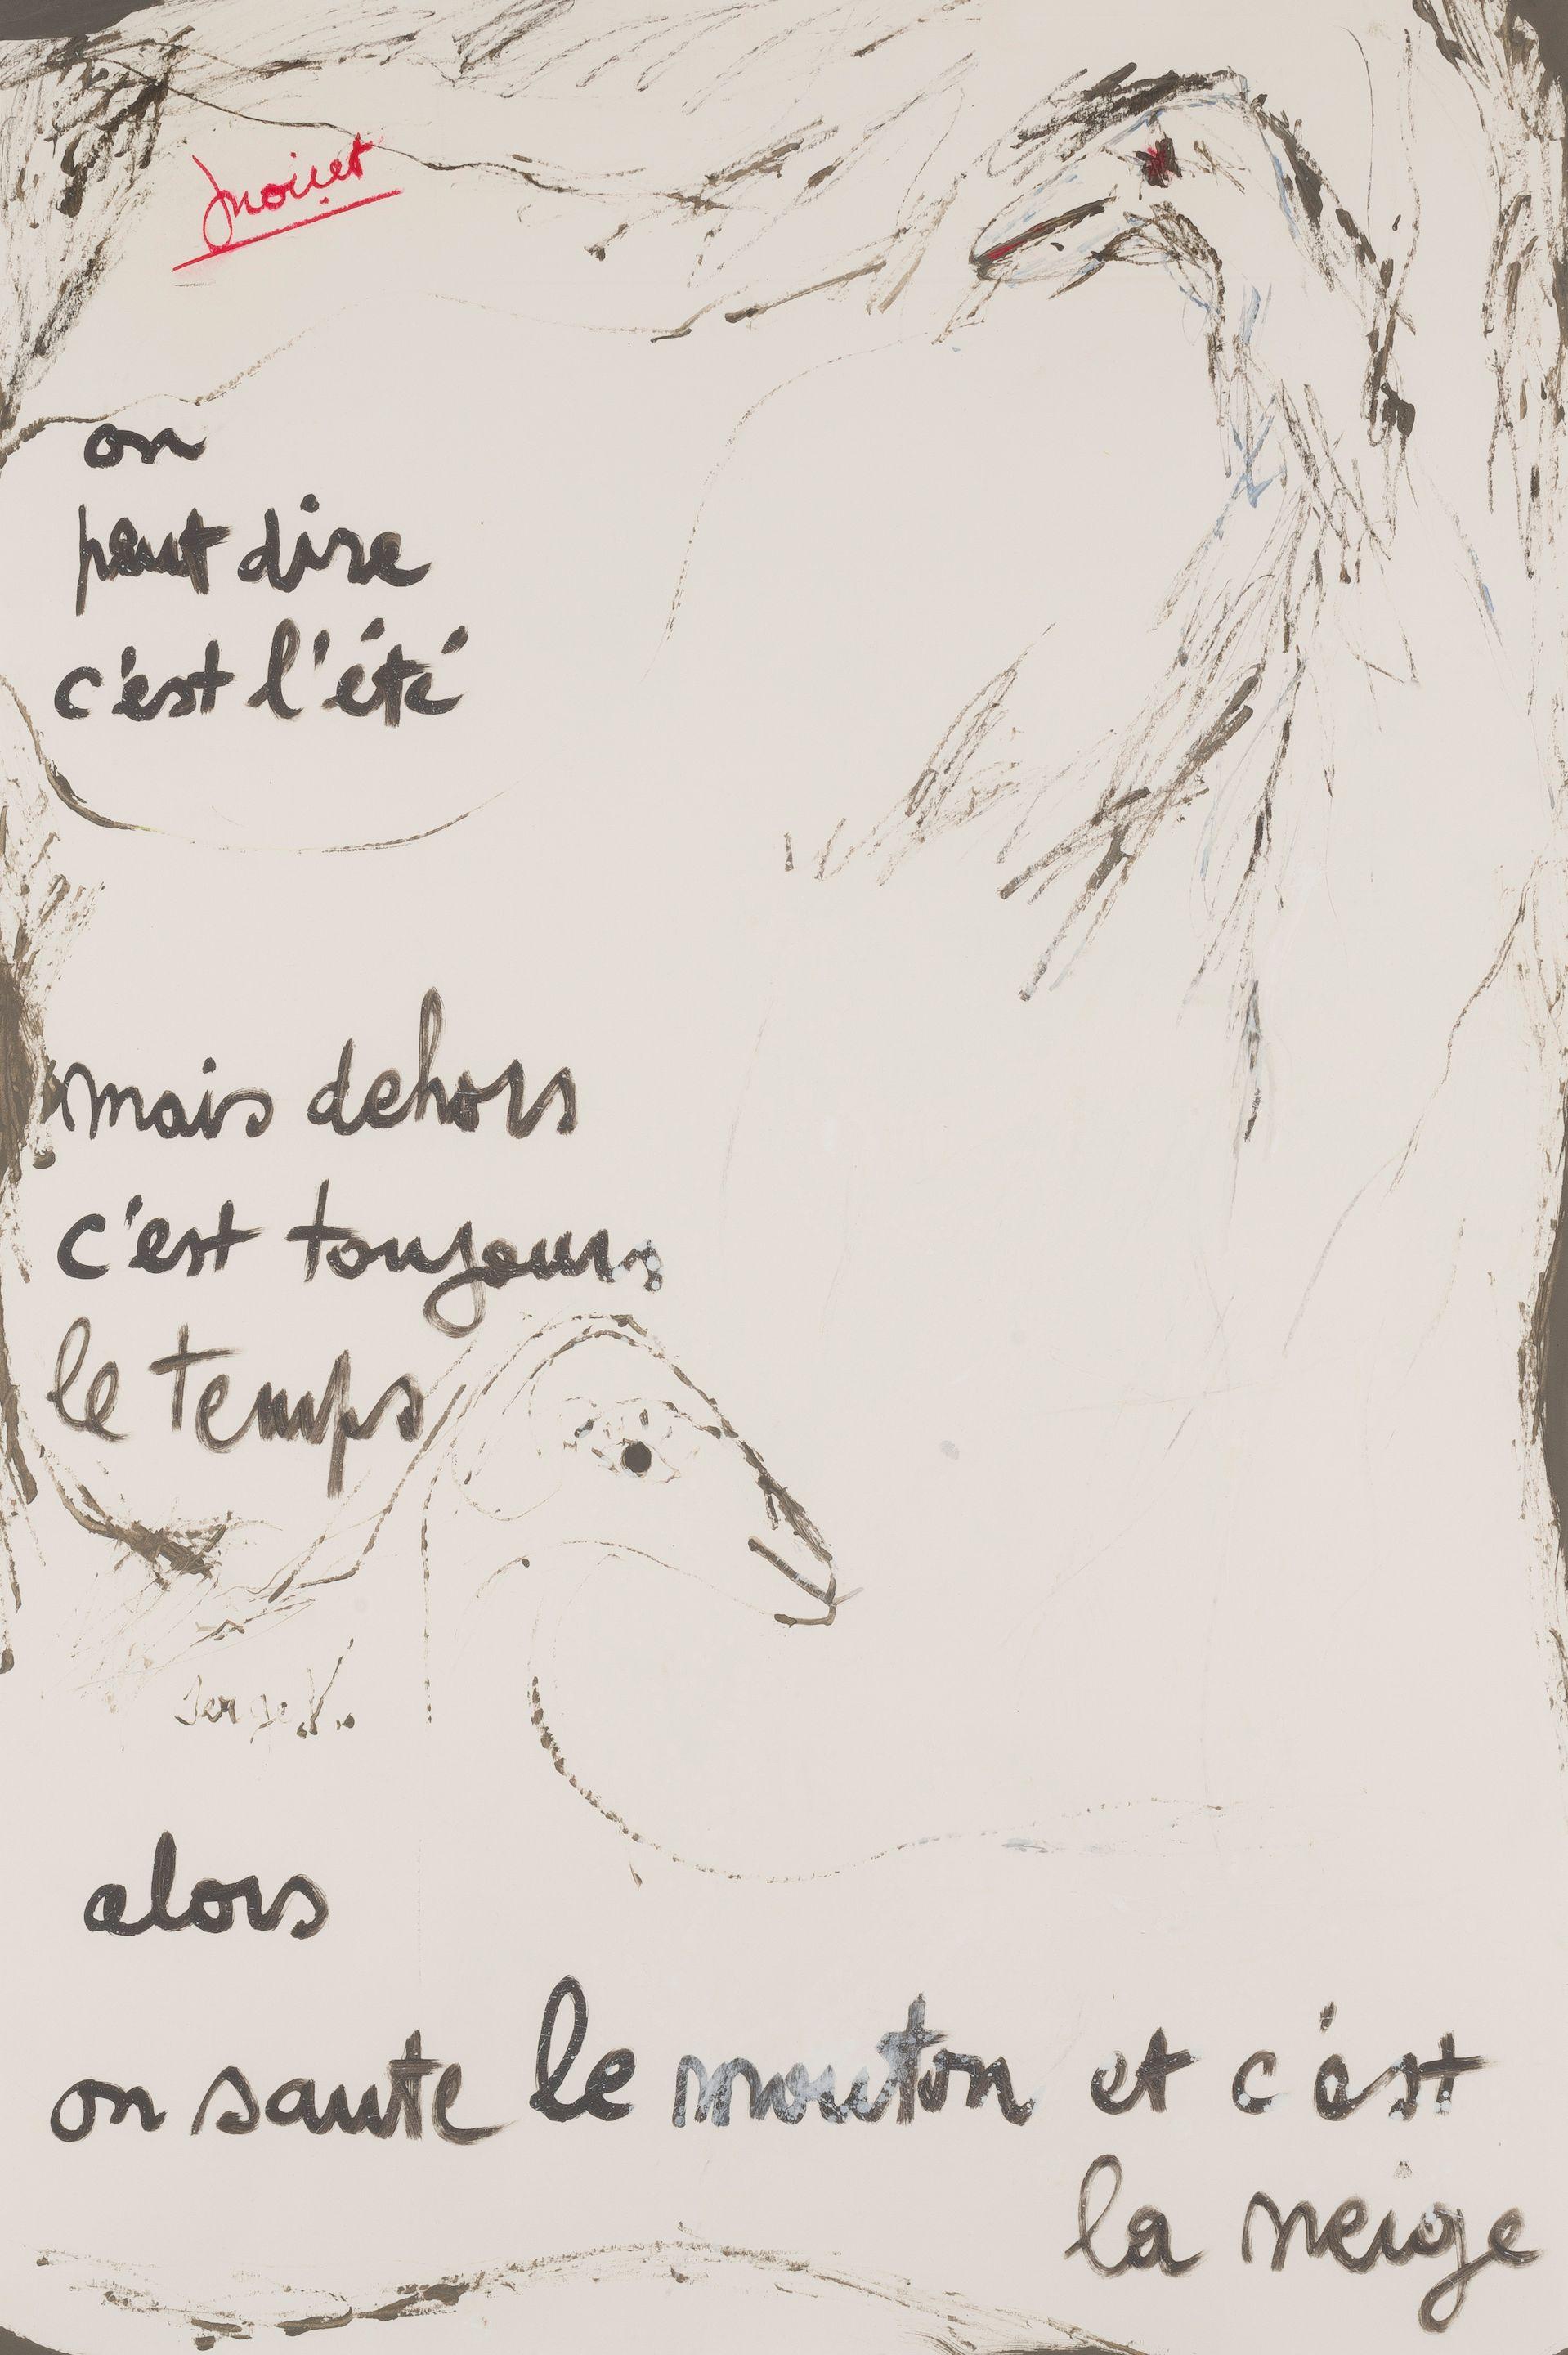 Jnoiret
on
peut dire
c'est l'été
mais dehors
c'est toujours
le temps
Serge V.
alors
on saute le mouton et c'est
la neige